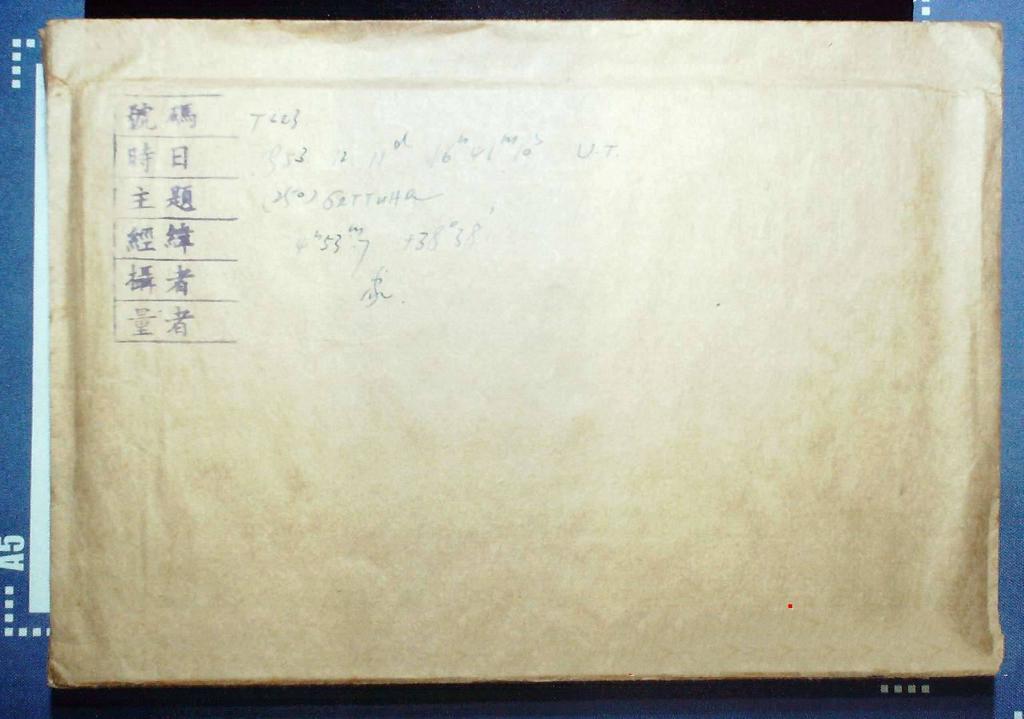 號碼 T623
時日 1953 12 11ᵈ 16ʰ41ᵐ10ˢ U.T.
主題 (250) Беттина
經緯 4ʰ53ᵐ.7 +38°38′
攝者
量者
A5